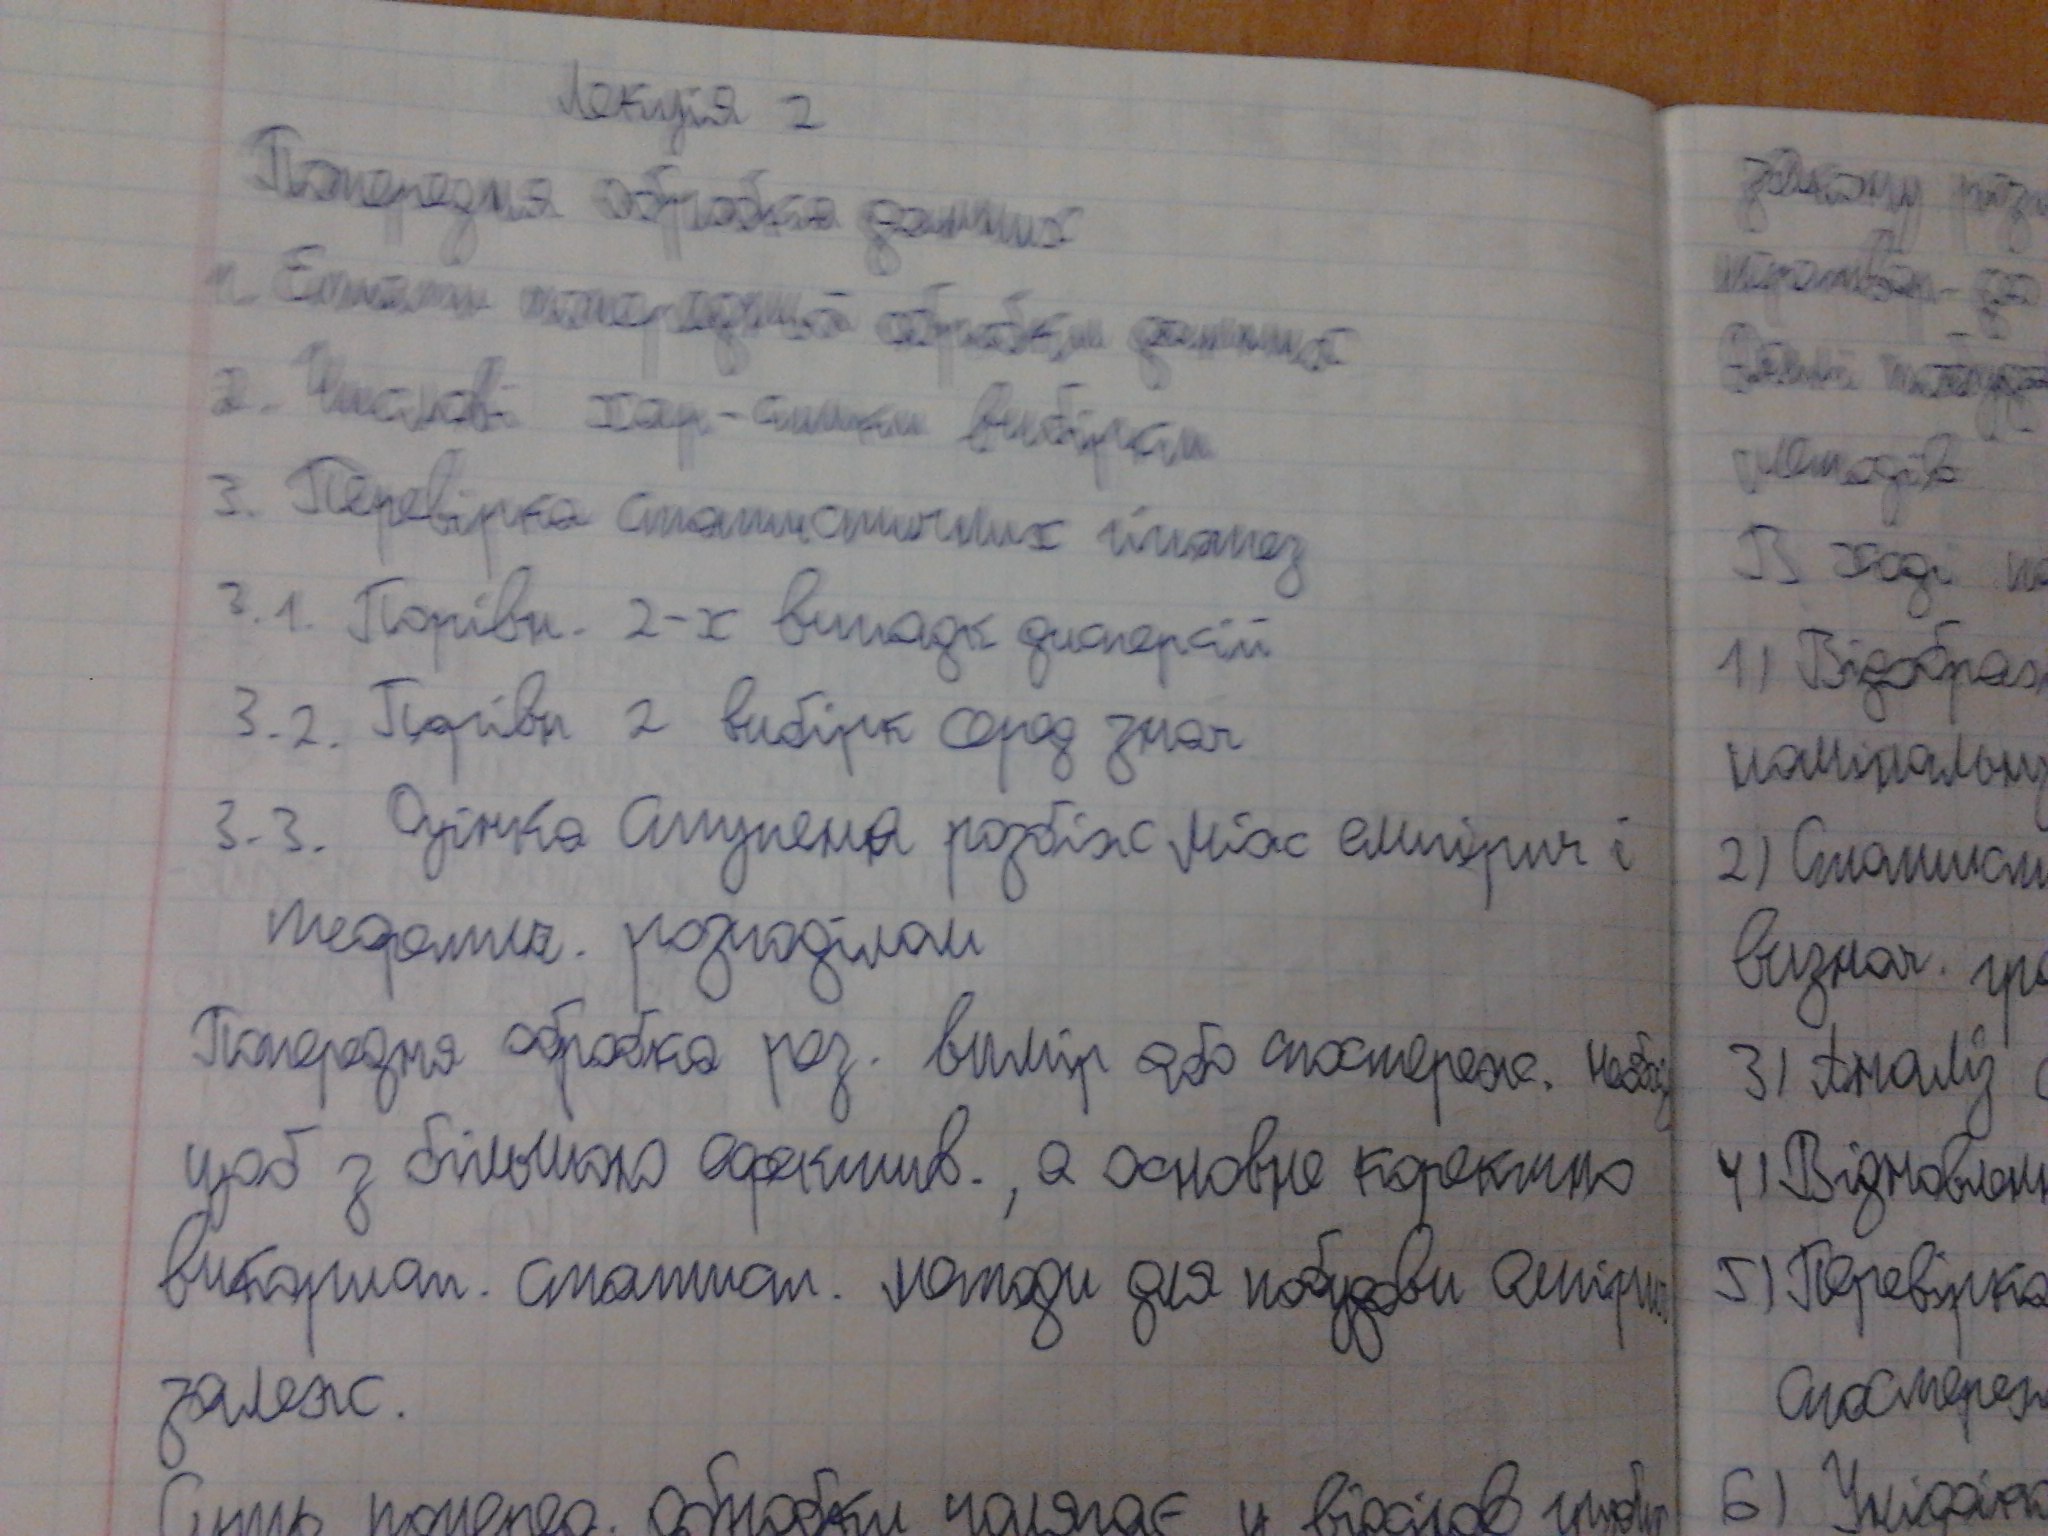 Лекція 2
Попередня обробка данних
1. Етапи попередньої обробки данних
2. Числові хар-стики вибірки
3. Перевірка статистичних гіпотез
3.1. Порівн. 2-х випадк дисперсій
3.2. Порівн 2 вибірк серед знач
3.3. Оцінка ступеня розбіж між емпірич і
теоретич. розподілом
Попередня обробка рез. вимір або спостереж. необх
щоб з більшою ефектив., а основне коректно
використ. статист. методи для побудови емпірич
залеж.
Суть поперед. обробки полягає у відсіюв грубих
закону розп
методів
В ході по
1) Відображ
номінальну
2) Статисти
визнач. гра
3) Аналіз
4) Відновленн
5) Перевірка
спостереж
6) Уніфіка